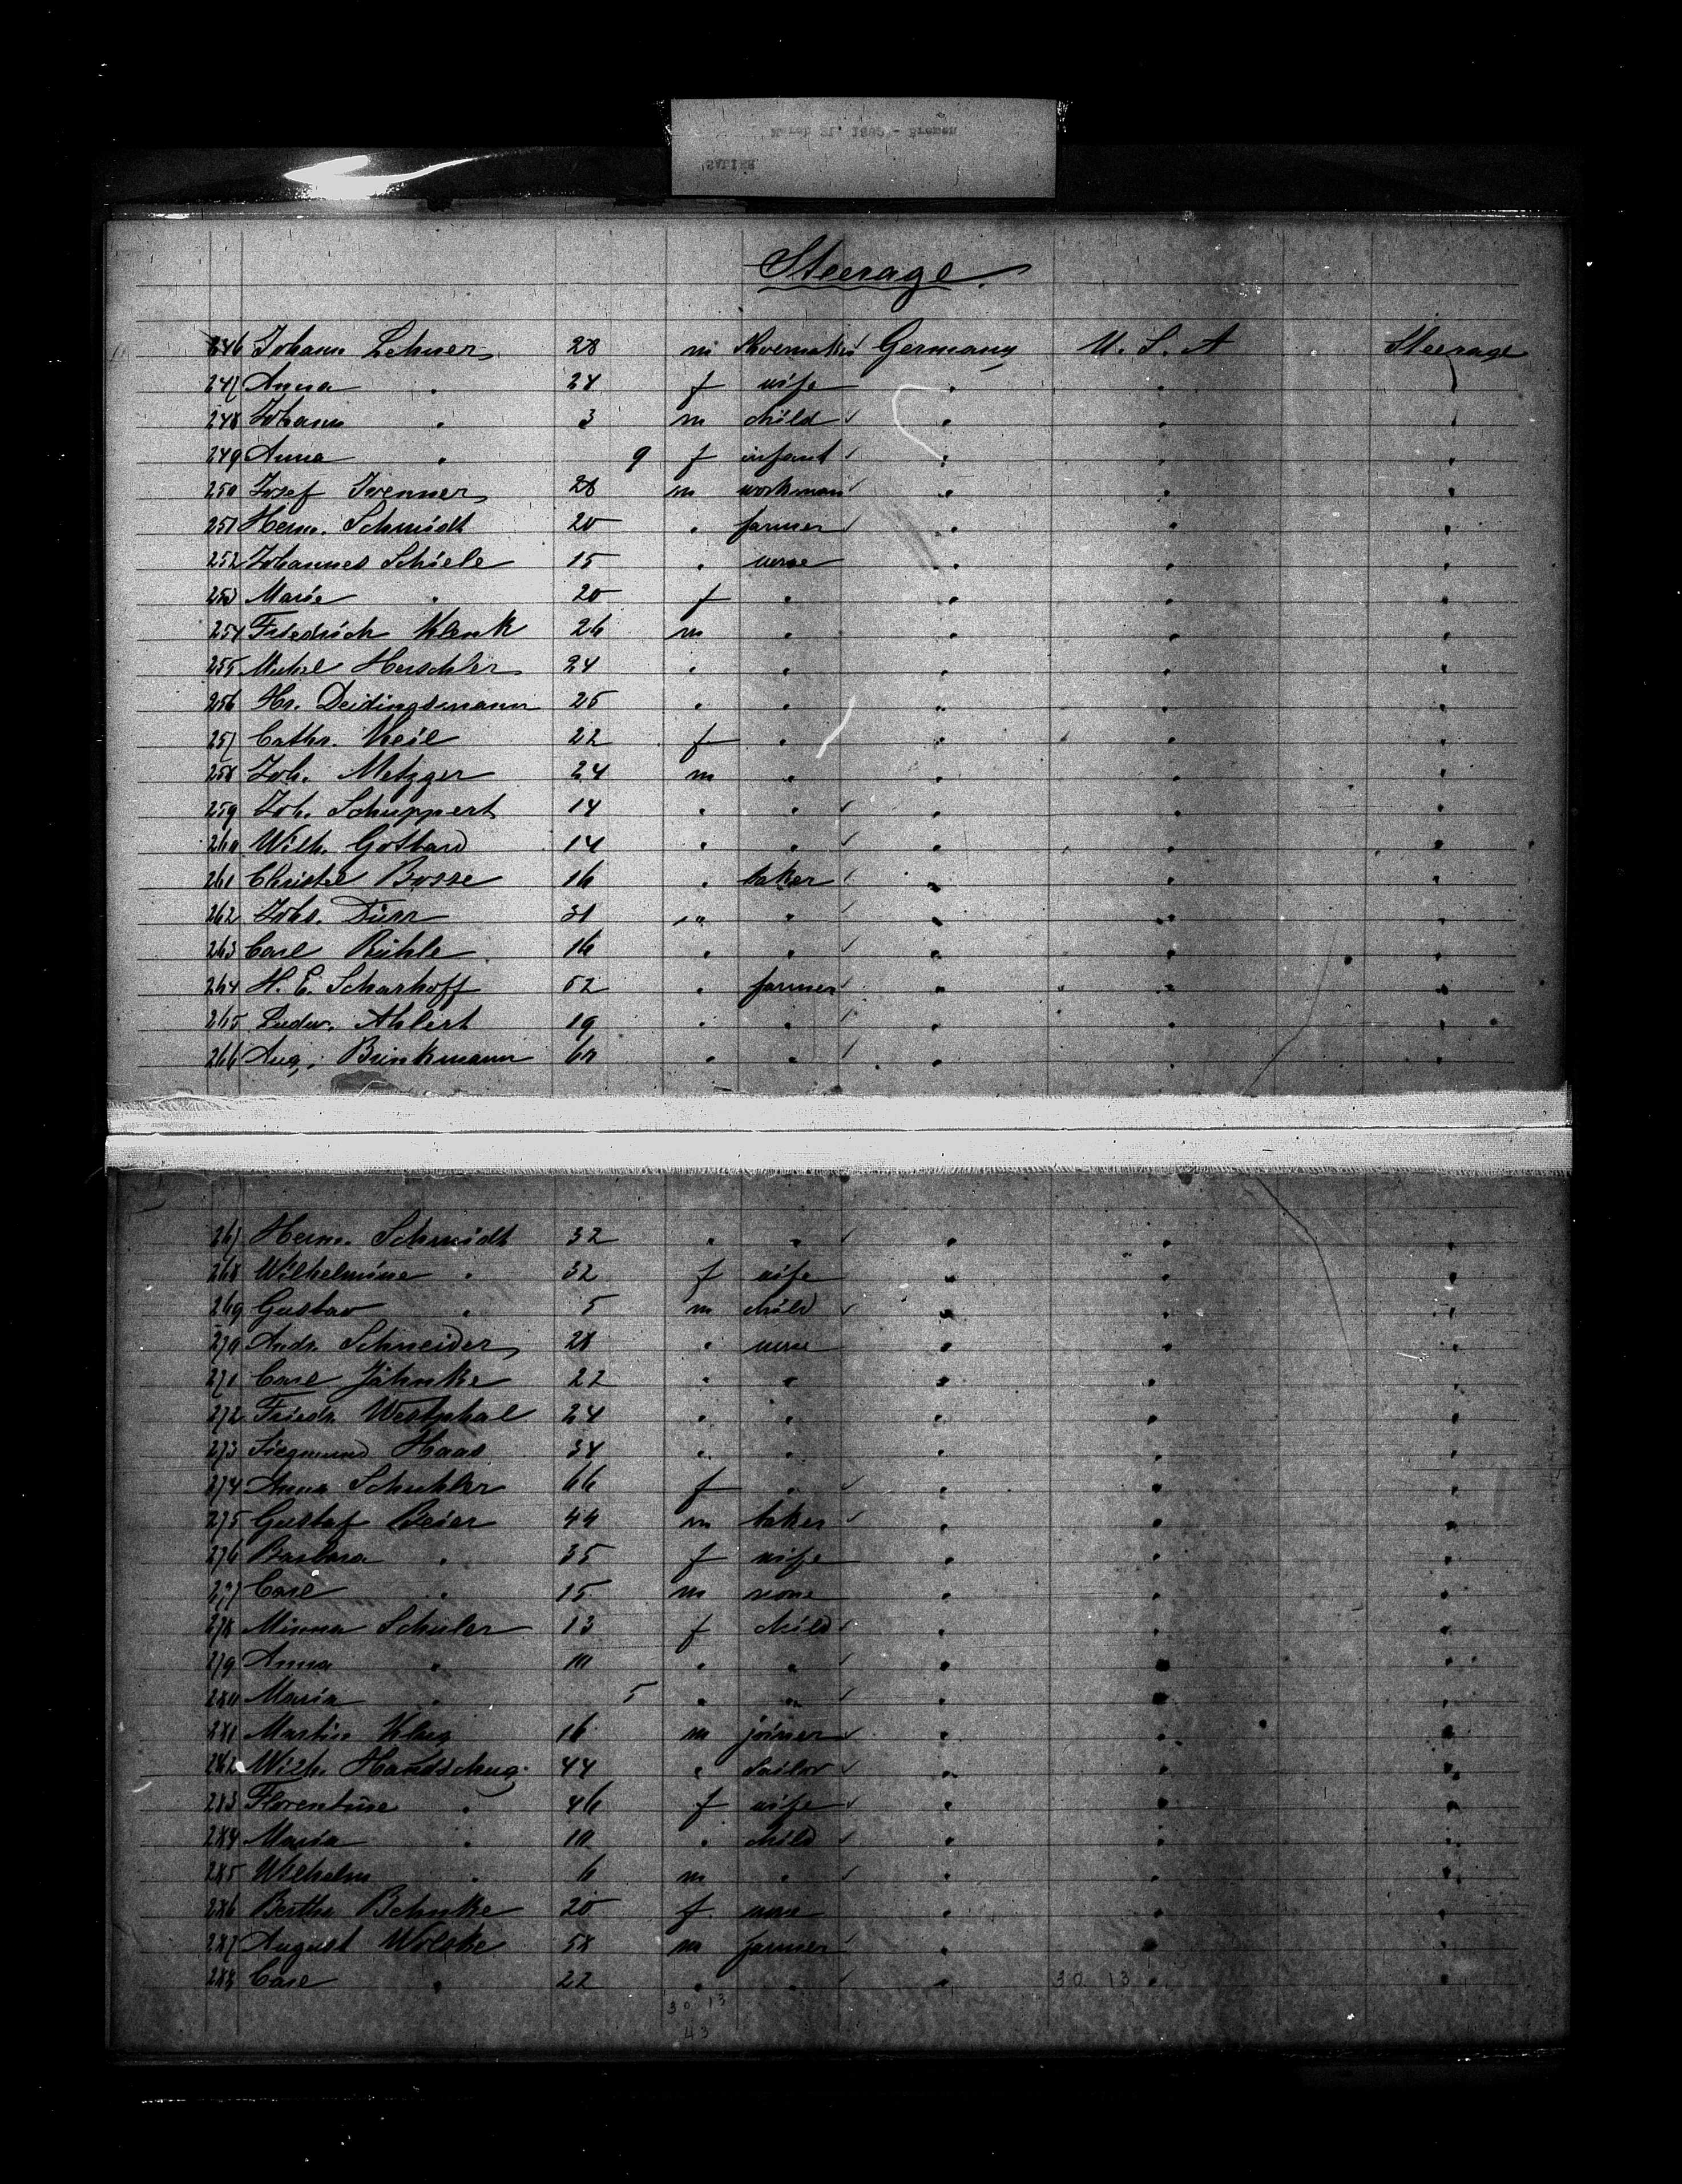 SALIER
March 21, 1889 - Bremen
Steerage
246 Johann Lehner 28 m Germany U. S. A Steerage
247 Anna " 24 f wife " " "
248 Johann " 3 m child " " "
249 Anna " 9 f infant " " "
250 Josef 28 m workman " " "
251 Herm. Schmidt 20 " farmer " " "
252 Johannes Schiele 15 " none " " "
253 Marie " 20 f " " " "
254 Friedrich Klenk 26 m " " " "
255 Michel Herschler 24 " " " " "
256 Hr. Deidingsmann 25 " " " " "
257 Cathr. Keil 22 f " " " "
258 Joh. Metzger 24 m " " " "
259 Joh. Schuppert 14 " " " " "
260 Wilh. 14 " " " " "
261 Christel Bosse 16 " baker " " "
262 Johs. Dürr 31 " " " " "
263 Carl Rühle 16 " " " " "
264 H. E. Scharhoff 52 " farmer " " "
265 Ludw. Ahlert 19 " " " " "
266 Aug. Brinkmann 60 " " " " "
267 Herm. Schmidt 32 " " " " "
268 Wilhelmine " 32 f wife " " "
269 Gustav " 5 m child " " "
270 Andr. Schneider 28 " none " " "
271 Carl Jähnke 22 " " " " "
272 Friedr. Westphal 24 " " " " "
273 Siegmund Haas 34 " " " " "
274 Anna 66 f " " " "
275 Gustaf Beier 44 m baker " " "
276 Barbara " 35 f wife " " "
277 Carl " 15 m none " " "
278 Minna Schuler 13 f child " " "
279 Anna " 10 " " " " "
280 Maria " 5 " " " " "
281 Martin Klug 16 m joiner " " "
282 Wilh. Handschug 44 " " " "
283 Florentine " 46 f wife " " "
284 Maria " 10 " child " " "
285 Wilhelm " 6 m " " " "
286 Bertha Behnke 20 f none " " "
287 August Wolske 58 m farmer " " "
288 Carl " 22 " " " " "
30 13
30 13
43